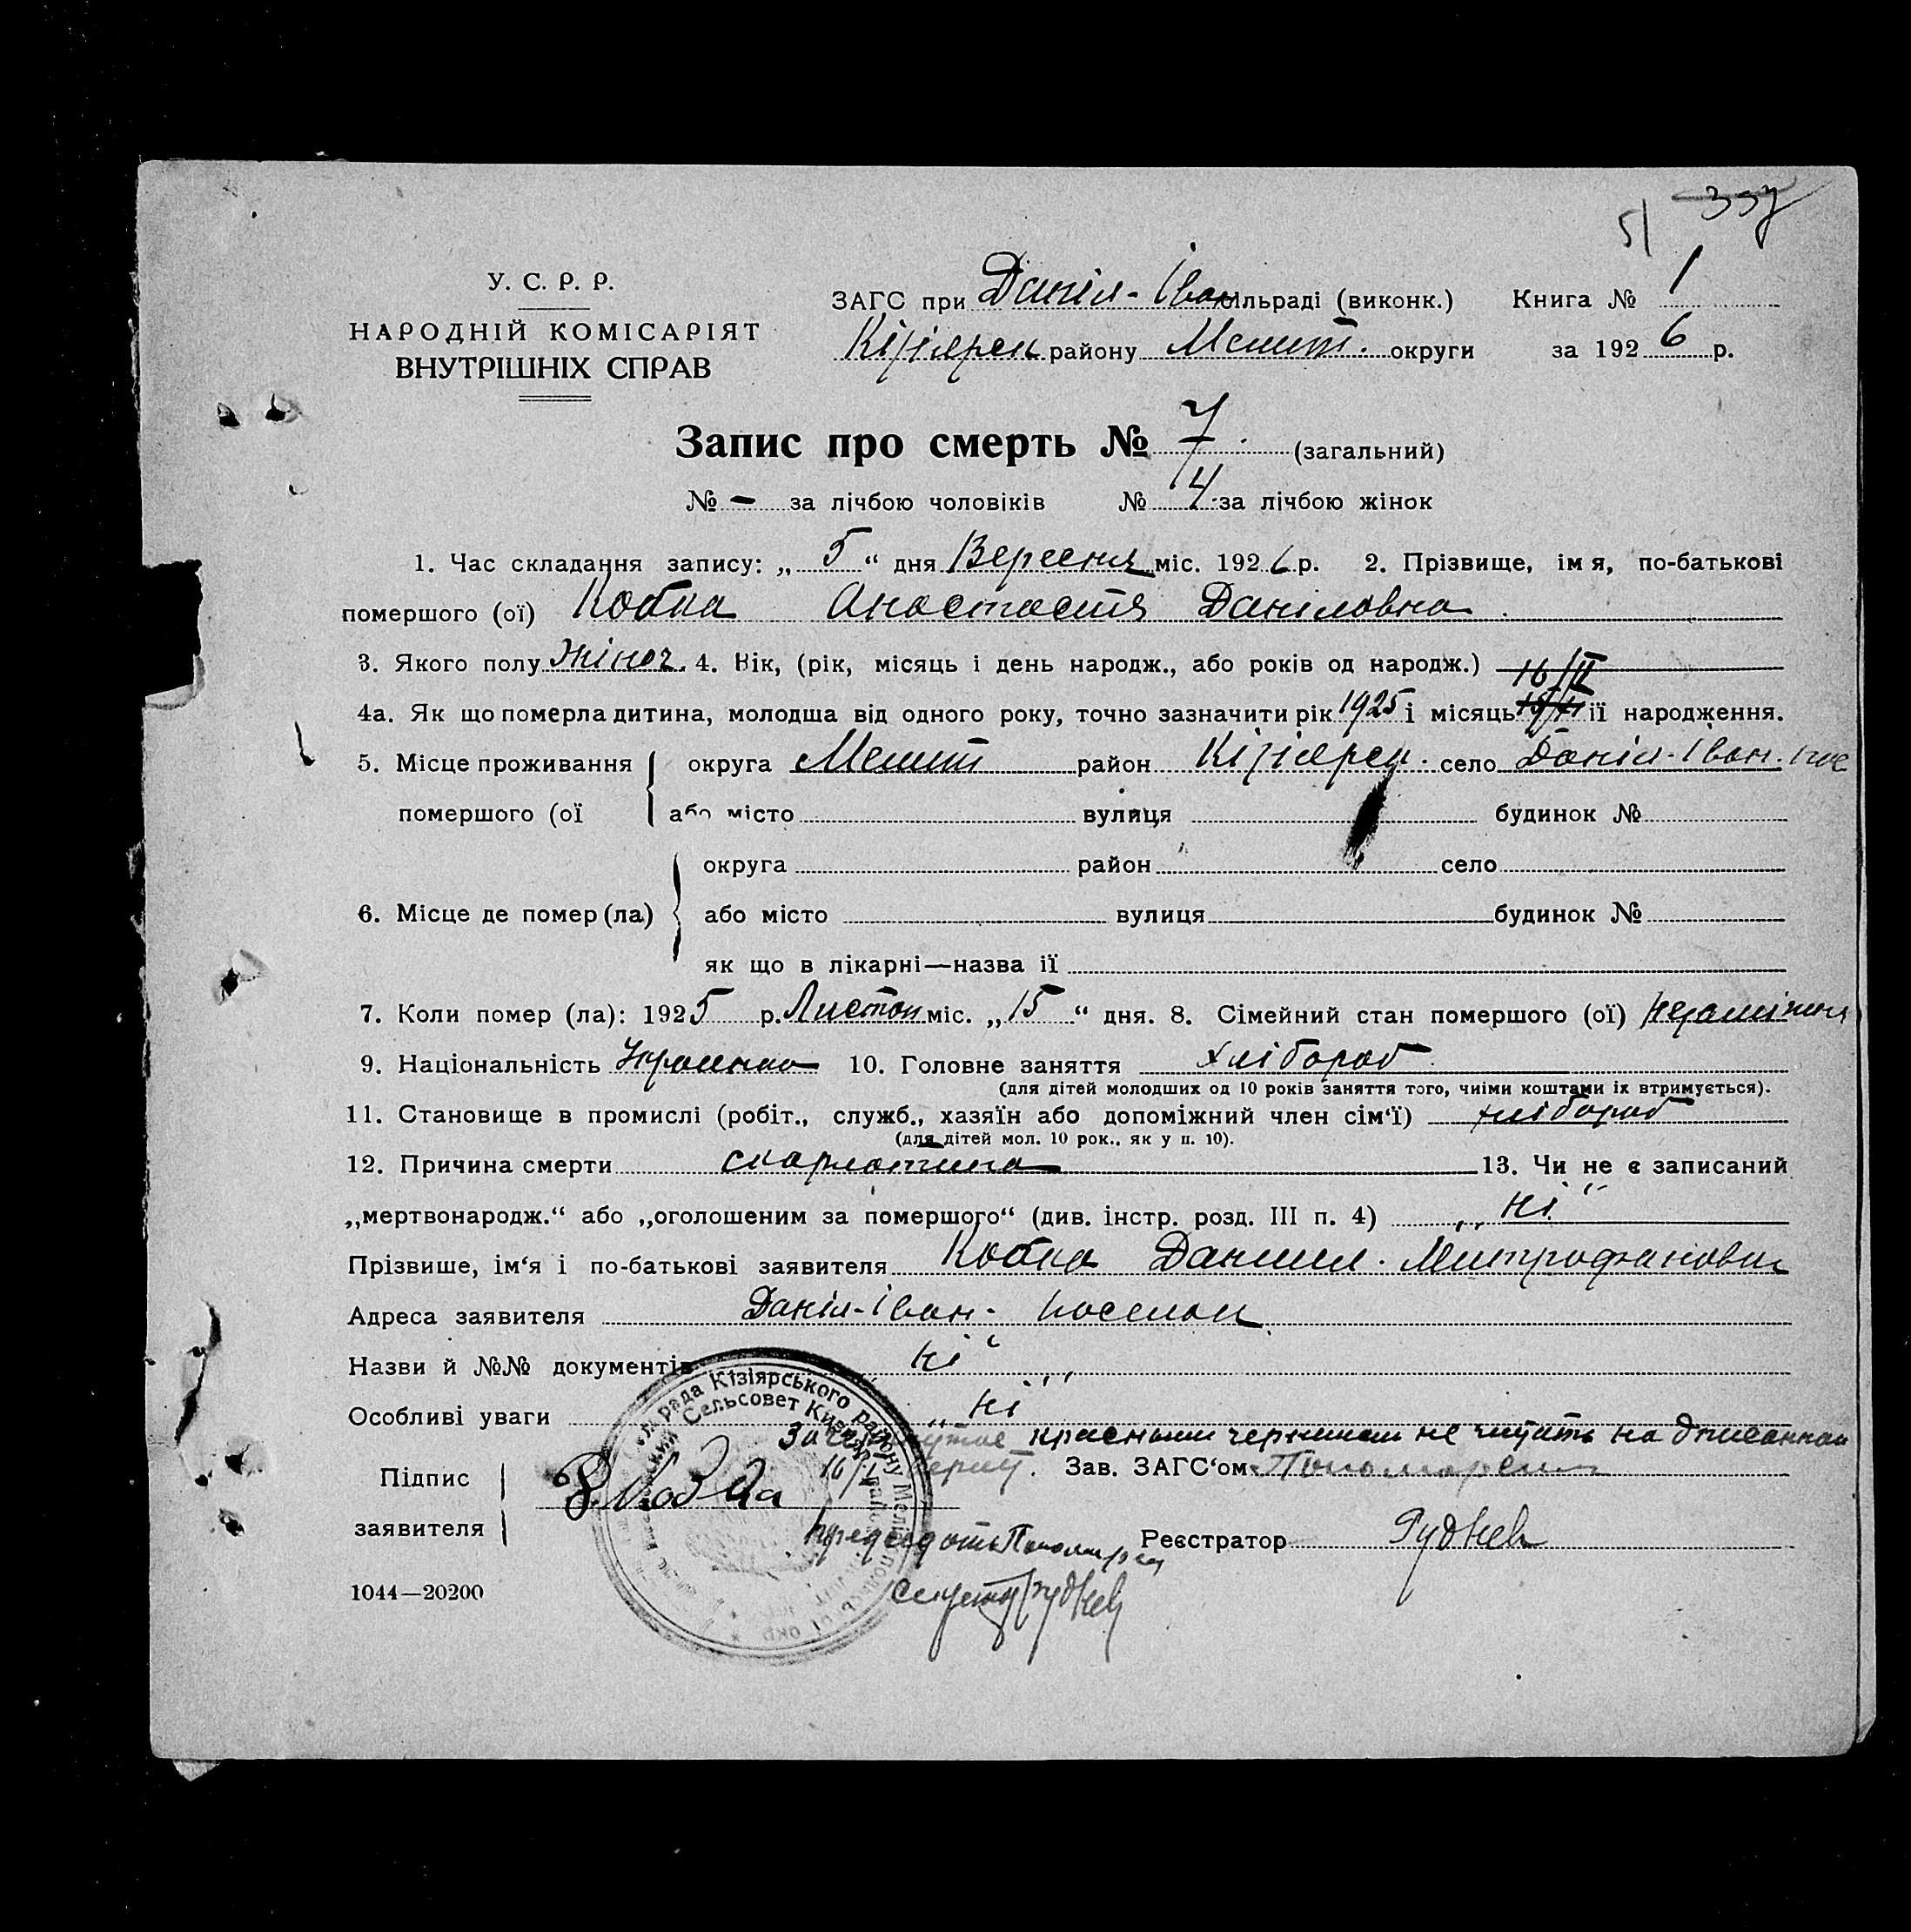 51 337
У. С. Р. Р.
НАРОДНІЙ КОМІСАРІЯТ
ВНУТРІШНІХ СПРАВ
ЗАГС при Даніл-Іван сільраді (виконк.) Книга № 1
Кізіярск району Мелит. округи за 1926 р.
Запис про смерть № 7. (загальний)
№ – за лічбою чоловіків № 4 за лічбою жінок
1. Час складання запису: „5“ дня Вересня міс. 1926 р. 2. Прізвище, імя, по-батькові
помершого (ої) Кобка Анастастя Даніловна
3. Якого полу Жіноч. 4. Вік, (рік, місяць і день народж., або років од народж.)
4а. Як що померла дитина, молодша від одного року, точно зазначити рік 1925 і місяць 16/II її народження.
5. Місце проживання помершого (ої округа Мелит район Кізіярск. село Даніл-Іван. пос
або місто вулиця будинок №
6. Місце де помер (ла) округа район село
або місто вулиця будинок №
як що в лікарні—назва її
7. Коли помер (ла): 1925 р. Листоп міс. „15“ дня. 8. Сімейний стан помершого (ої) незаміжня
9. Національність Украинка 10. Головне заняття хлібороб
(для дітей молодших од 10 років заняття того, чиїми коштами їх втримується).
11. Становище в промислі (робіт., служб., хазяїн або допоміжний член сім‘ї) хлібороб
(для дітей мол. 10 рок., як у п. 10).
12. Причина смерти скарлатина 13. Чи не є записаний
„мертвонародж.“ або „оголошеним за помершого“ (див. інстр. розд. III п. 4) „ні“
Прізвише, ім‘я і по-батькові заявителя Кобка Даниил Митрофанович
Адреса заявителя Даніл-Іван- поселок
Назви й №№ документів „ні“
Особливі уваги „ні“
красными чернилами не читать
Підпис заявителя Кобка Зав. ЗАГС‘ом Пономарен
Председать Пономарен Реєстратор Руднев
Секретарь Руднев
1044—20200
рада Кізіярського району Меліт
Сельсовет